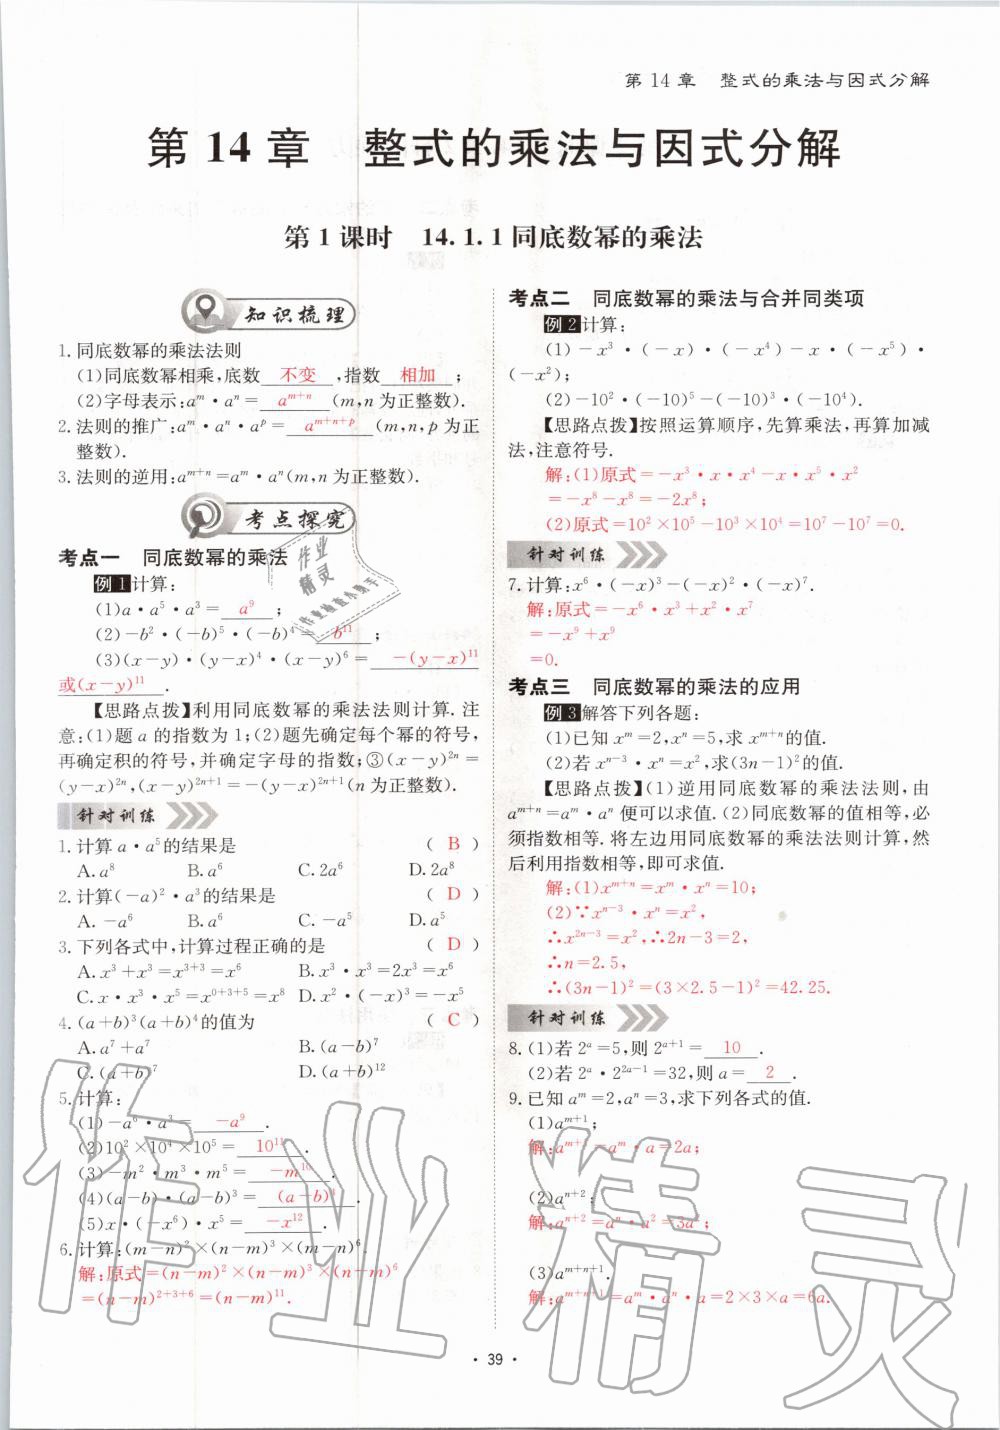 第 14 章　整式的乘法与因式分解
第 14 章　整式的乘法与因式分解
第 1 课时　14.1.1 同底数幂的乘法
知识梳理
1. 同底数幂的乘法法则
(1)同底数幂相乘,底数 不变 ,指数 相加 ;
(2)字母表示:aᵐ·aⁿ= aᵐ⁺ⁿ (m,n 为正整数).
2. 法则的推广:aᵐ·aⁿ·aᵖ= aᵐ⁺ⁿ⁺ᵖ (m,n,p 为正
整数).
3. 法则的逆用:aᵐ⁺ⁿ=aᵐ·aⁿ(m,n 为正整数).
考点探究
考点一　同底数幂的乘法
例 1 计算:
(1)a·a⁵·a³= a⁹ ;
(2)-b²·(-b)⁵·(-b)⁴= b¹¹ ;
(3)(x-y)·(y-x)⁴·(x-y)⁶= -(y-x)¹¹
或(x-y)¹¹ .
【思路点拨】利用同底数幂的乘法法则计算. 注
意:(1)题 a 的指数为 1;(2)题先确定每个幂的符号,
再确定积的符号,并确定字母的指数;③(x-y)²ⁿ=
(y-x)²ⁿ,(x-y)²ⁿ⁺¹=-(y-x)²ⁿ⁺¹(n 为正整数).
针对训练
1. 计算 a·a⁵ 的结果是 ( B )
A. a⁸ B. a⁶ C. 2a⁶ D. 2a⁸
2. 计算(-a)²·a³ 的结果是 ( D )
A. -a⁶ B. a⁶ C. -a⁵ D. a⁵
3. 下列各式中,计算过程正确的是 ( D )
A. x³+x³=x³⁺³=x⁶ B. x³·x³=2x³=x⁶
C. x·x³·x⁵=x⁰⁺³⁺⁵=x⁸ D. x²·(-x)³=-x⁵
4. (a+b)³(a+b)⁴ 的值为 ( C )
A. a⁷+a⁷ B. (a-b)⁷
C. (a+b)⁷ D. (a+b)¹²
5. 计算:
(1)-a⁶·a³= -a⁹ .
(2)10²×10⁴×10⁵= 10¹¹ .
(3)-m²·m³·m⁵= -m¹⁰ .
(4)(a-b)·(a-b)³= (a-b)⁴ .
(5)x·(-x⁶)·x⁵= -x¹² .
6. 计算:(m-n)²×(n-m)³×(m-n)⁶.
解:原式=(n-m)²×(n-m)³×(n-m)⁶
=(n-m)²⁺³⁺⁶=(n-m)¹¹.
考点二　同底数幂的乘法与合并同类项
例 2 计算:
(1)-x³·(-x)·(-x⁴)-x·(-x⁵)·
(-x²);
(2)-10²·(-10)⁵-(-10)³·(-10⁴).
【思路点拨】按照运算顺序,先算乘法,再算加减
法,注意符号.
解:(1)原式=-x³·x·x⁴-x·x⁵·x²
=-x⁸-x⁸=-2x⁸;
(2)原式=10²×10⁵-10³×10⁴=10⁷-10⁷=0.
针对训练
7. 计算:x⁶·(-x)³-(-x)²·(-x)⁷.
解:原式=-x⁶·x³+x²·x⁷
=-x⁹+x⁹
=0.
考点三　同底数幂的乘法的应用
例 3 解答下列各题:
(1)已知 xᵐ=2,xⁿ=5,求 xᵐ⁺ⁿ 的值.
(2)若 xⁿ⁻³·xⁿ=x²,求(3n-1)² 的值.
【思路点拨】(1)逆用同底数幂的乘法法则,由
aᵐ⁺ⁿ=aᵐ·aⁿ 便可以求值. (2)同底数幂的值相等,必
须指数相等. 将左边用同底数幂的乘法法则计算,然
后利用指数相等,即可求值.
解:(1)xᵐ⁺ⁿ=xᵐ·xⁿ=10;
(2)∵xⁿ⁻³·xⁿ=x²,
∴x²ⁿ⁻³=x²,∴2n-3=2,
∴n=2.5,
∴(3n-1)²=(3×2.5-1)²=42.25.
针对训练
8. (1)若 2ᵃ=5,则 2ᵃ⁺¹= 10 .
(2)若 2ᵃ·2²ᵃ⁻¹=32,则 a= 2 .
9. 已知 aᵐ=2,aⁿ=3,求下列各式的值.
(1)aᵐ⁺¹;
解:aᵐ⁺¹=aᵐ·a=2a;
(2)aⁿ⁺²;
解:aⁿ⁺²=aⁿ·a²=3a²;
(3)aᵐ⁺ⁿ⁺¹.
解:aᵐ⁺ⁿ⁺¹=aᵐ·aⁿ·a=2×3×a=6a.
· 39 ·
作业精灵
作业
精灵